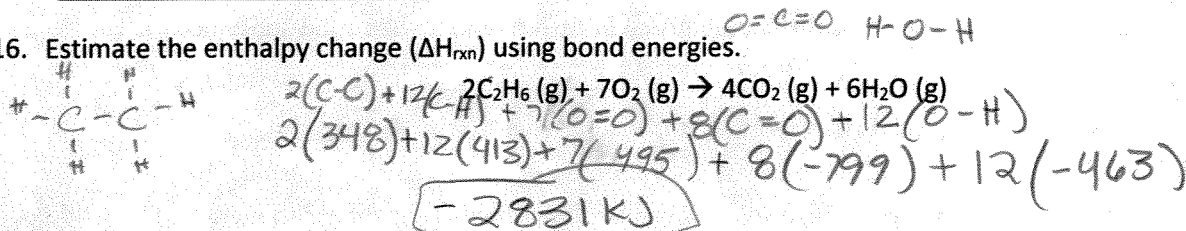 O=C=O H-O-H
16. Estimate the enthalpy change (ΔHrxn) using bond energies.
2C₂H₆ (g) + 7O₂ (g) → 4CO₂ (g) + 6H₂O (g)
H H
H-C-C-H
H H
2(C-C)+12(C-H)+7(O=O)+8(C=O)+12(O-H)
2(348)+12(413)+7(495)+8(-799)+12(-463)
-2831 KJ